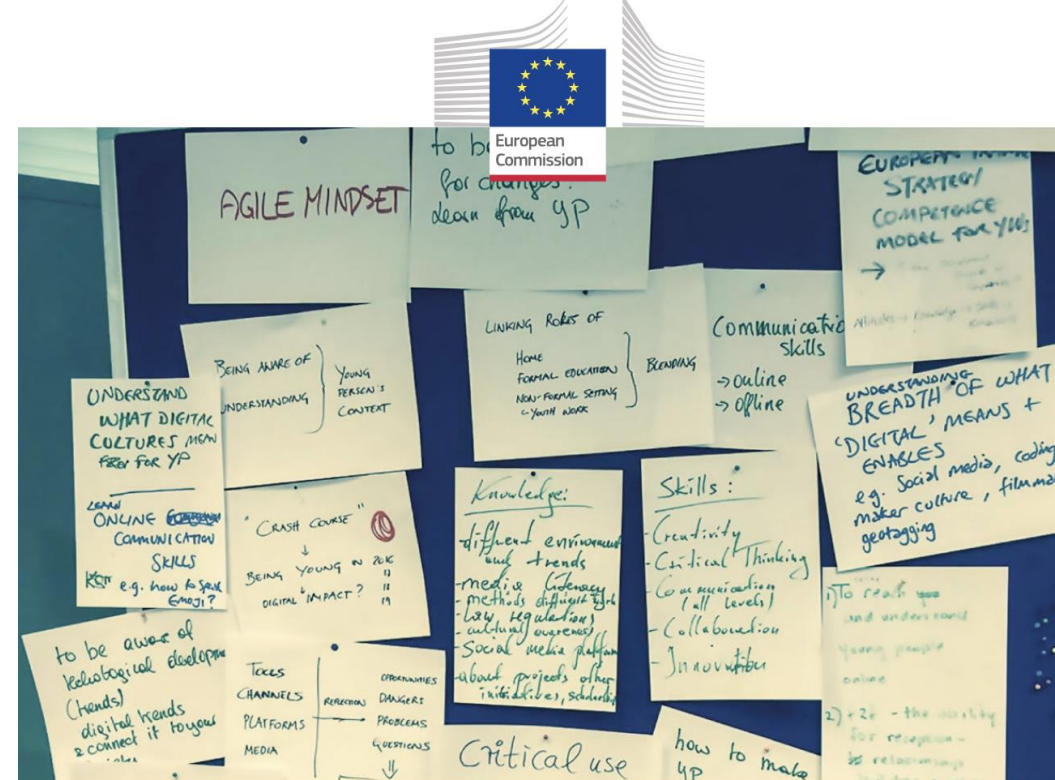 European
Commission
AGILE MINDSET
to be
for changes!
learn from YP
EUROPEAN
STRATEGY
COMPETENCE
MODEL FOR YWs
→
BEING AWARE OF
UNDERSTANDING
YOUNG
PERSON'S
CONTEXT
LINKING ROLES OF
HOME
FORMAL EDUCATION
NON-FORMAL SETTING
YOUTH WORK
BLENDING
Communicatio
Skills
→ online
→ offline
UNDERSTANDING
BREADTH OF WHAT
'DIGITAL' MEANS +
ENABLES
e.g. Social media, coding
maker culture, filmma
geotagging
UNDERSTAND
WHAT DIGITAL
CULTURES MEAN
FOR YP
LEARN
ONLINE
COMMUNICATION
SKILLS
e.g. how to speak
EMOJI?
"CRASH COURSE"
↓
BEING YOUNG IN 2016
17
DIGITAL IMPACT? 18
19
Knowledge:
-diffrent environment
and trends
-media literacy
-methods
-law regulations
-cultural awareness
-Social media platform
-about projects other
initiatives, scholarship
Skills:
-Creativity
-Critical Thinking
-Communication
(all levels)
-Collaboration
-Innovation
1) To reach
and understand
young people
online
2) +2+ - the
for reception-
to be aware of
(trends)
digital trends
& connect it to your
TOOLS
CHANNELS
PLATFORMS
MEDIA
REFLECTION
OPPORTUNITIES
DANGERS
PROBLEMS
QUESTIONS
Critical use
how to make
YP